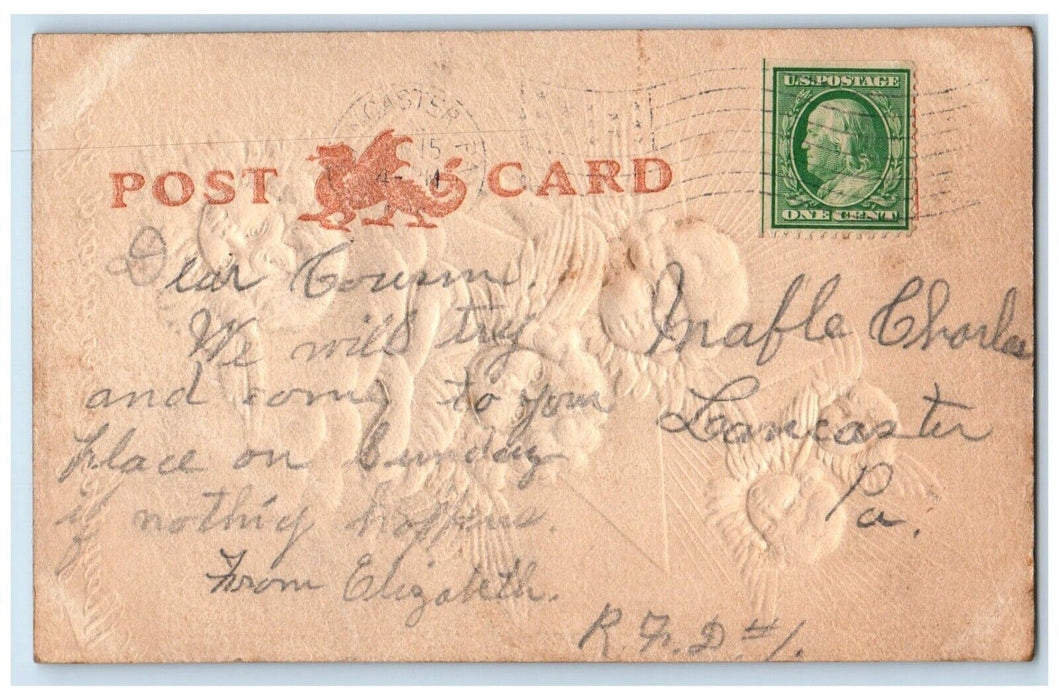 CASTER
15
POST CARD
U.S. POSTAGE
ONE CENT
Dear Cousin.
We will try
and come to your
place on Sunday
if nothing happens.
From Elizabeth.
Mable Charles
Lancaster
Pa.
R.F.D #1.